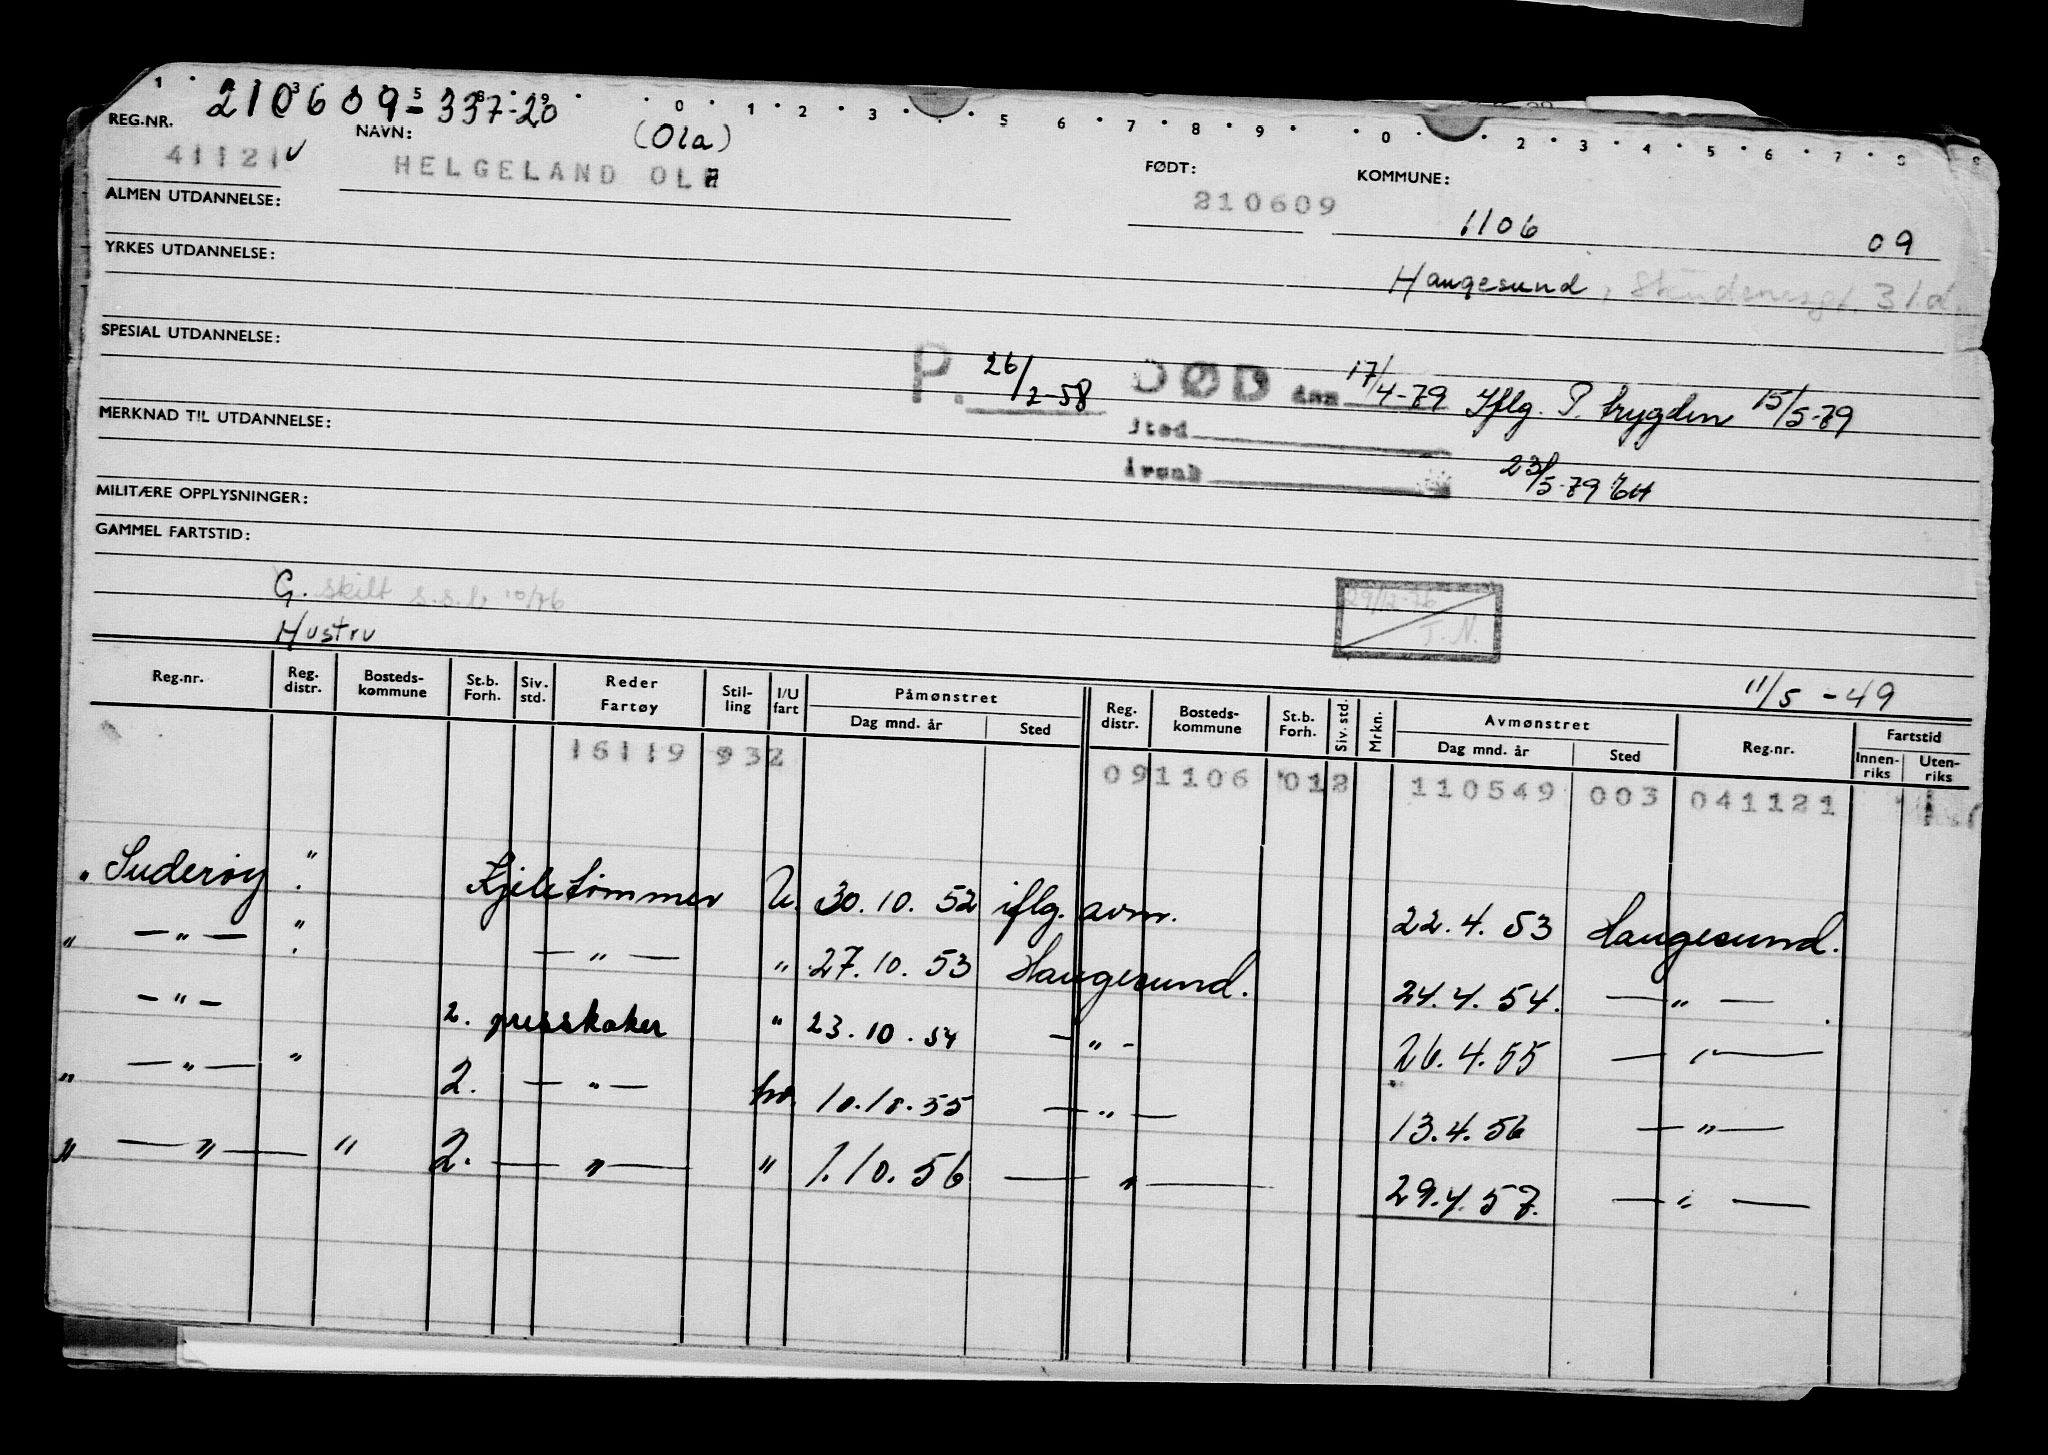 1 3 5 8 9 0 1 2 3 5 6 7 8 9 0 2 3 4 5 6 7 8 9
REG.NR. 210609-337-20
NAVN: (Ola)
41121 HELGELAND OLE
FØDT: 210609
KOMMUNE: 1106 09
ALMEN UTDANNELSE:
YRKES UTDANNELSE:
Haugesund, 31d.
SPESIAL UTDANNELSE:
P. 26/2-58 DØD den 17/4-79 Iflg. P. trygden 15/5-79
MERKNAD TIL UTDANNELSE:
Sted
Årsak 23/5-79
MILITÆRE OPPLYSNINGER:
GAMMEL FARTSTID:
G. skilt s.s.b. 10/76
29/12-76
T.N.
Hustru
11/5 - 49
Reg.nr. Reg. distr. Bosteds-kommune St.b. Forh. Siv. std. Reder Fartøy Stil-ling I/U fart Påmønstret Dag mnd. år Sted Reg. distr. Bosteds-kommune St.b. Forh. Siv. std. Mrkn. Avmønstret Dag mnd. år Sted Reg.nr. Fartstid Innen-riks Uten-riks
16119 932 091106 012 110549 003 041121
" Suderøy " Kjeletømmer U. 30.10.52 iflg. avm. 22.4.53 Haugesund.
" — " — " — " — " 27.10.53 Haugesund. 24.4.54. — " —
— " — 2. presskoker " 23.10.54 — " — 26.4.55 — " —
" — " — " 2. — " — hv. 10.10.55 — " — 13.4.56 — " —
" — " — " 2. — " — " 1.10.56 — " — 29.4.57. — " —